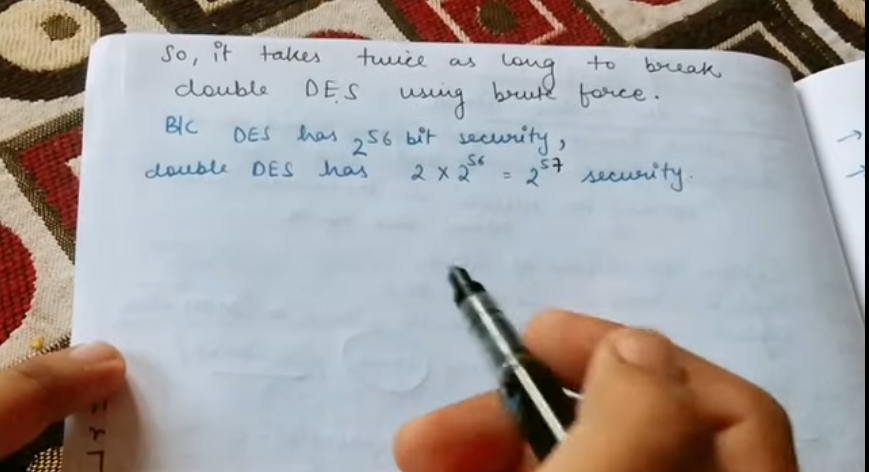 So, it takes twice as long to break
double DES using brute force.
B/C DES has 2^56 bit security,
double DES has 2 × 2^56 = 2^57 security.